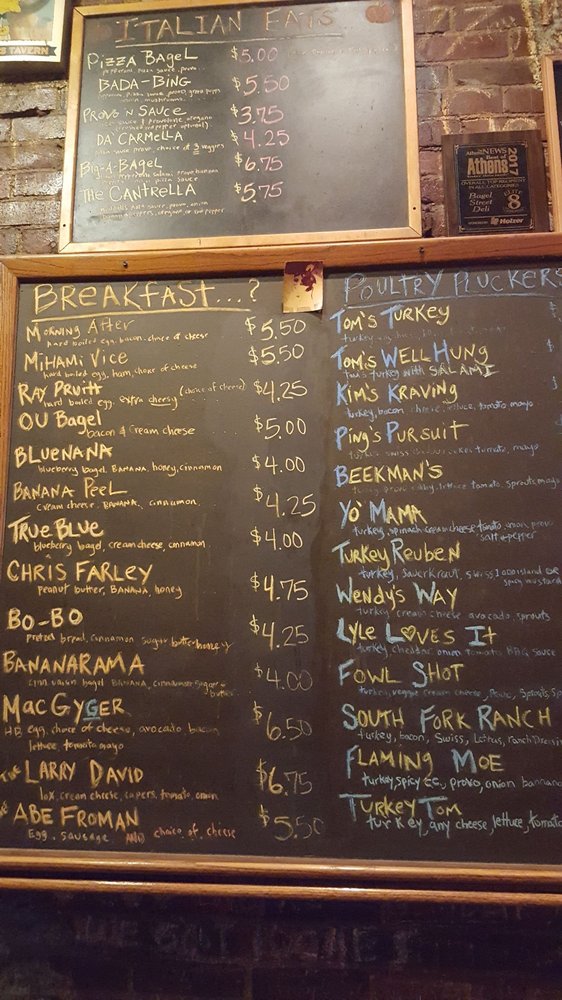 S TAVERN
ITALIAN EATS
PIZZA BAGEL $5.00
pepperoni, pizza sauce, provo
BADA-BING $5.50
pizza sauce, green pepps
onion, mushrooms
PROVO N SAUCE $3.75
sauce & provolone, oregano
(crushed red pepper optional)
DA CARMELLA $4.25
pizza sauce, provo, choice of 3 veggies
BIG-A-BAGEL $6.75
salami, provo, banana
pizza sauce
THE CANTRELLA $5.75
meatballs, pizza sauce, provo, onion
oregano, or red pepper
Athens NEWS
Best of
Athens
2017
OVERALL TOP
IN ALL CATEGORIES
Bagel
Street
Deli
8
Holzer
BREAKFAST...?
MORNING AFTER $5.50
hard boiled egg, bacon, choice of cheese
MIHAMI VICE $5.50
hard boiled egg, ham, choice of cheese
RAY PRUITT (choice of cheese) $4.25
hard boiled egg, extra cheesy
OU BAGEL $5.00
bacon & cream cheese
BLUENANA $4.00
blueberry bagel, BANANA, honey, cinnamon
BANANA PEEL $4.25
cream cheese, BANANA, cinnamon
TRUE BLUE $4.00
blueberry bagel, cream cheese, cinnamon
CHRIS FARLEY $4.75
peanut butter, BANANA, honey
BO-BO $4.25
pretzel bread, cinnamon sugar, butter, honey
BANANARAMA $4.00
cinn. raisin bagel, BANANA, cinnamon sugar &
butter
MACGYGER $6.50
HB egg, choice of cheese, avocado, bacon
lettuce, tomato, mayo
THE LARRY DAVID $6.75
lox, cream cheese, capers, tomato, onion
THE ABE FROMAN $5.50
Egg, sausage, AND choice of cheese
POULTRY PLUCKERS
TOM'S TURKEY $
turkey
TOM'S WELL HUNG $
Tom's turkey with SALAMI
KIM'S KRAVING
turkey, bacon, cheese, lettuce, tomato, mayo
PING'S PURSUIT
turkey, swiss, tomato, mayo
BEEKMAN'S
turkey, lettuce, tomato, sprouts, mayo
YO' MAMA
turkey, spinach cream cheese, tomato, onion, provo
salt & pepper
TURKEY REUBEN
turkey, sauerkraut, swiss, 1000 island OR
spicy mustard
WENDY'S WAY
turkey, cream cheese, avocado, sprouts
LYLE LOVES IT
turkey, cheddar, onion, tomato, BBQ sauce
FOWL SHOT
turkey, veggie cream cheese, Provo, Sprouts
SOUTH FORK RANCH
turkey, bacon, Swiss, lettuce, ranch Dressin
FLAMING MOE
turkey, spicy CC, provo, onion, banana
TURKEY TOM
turkey, any cheese, lettuce, tomato